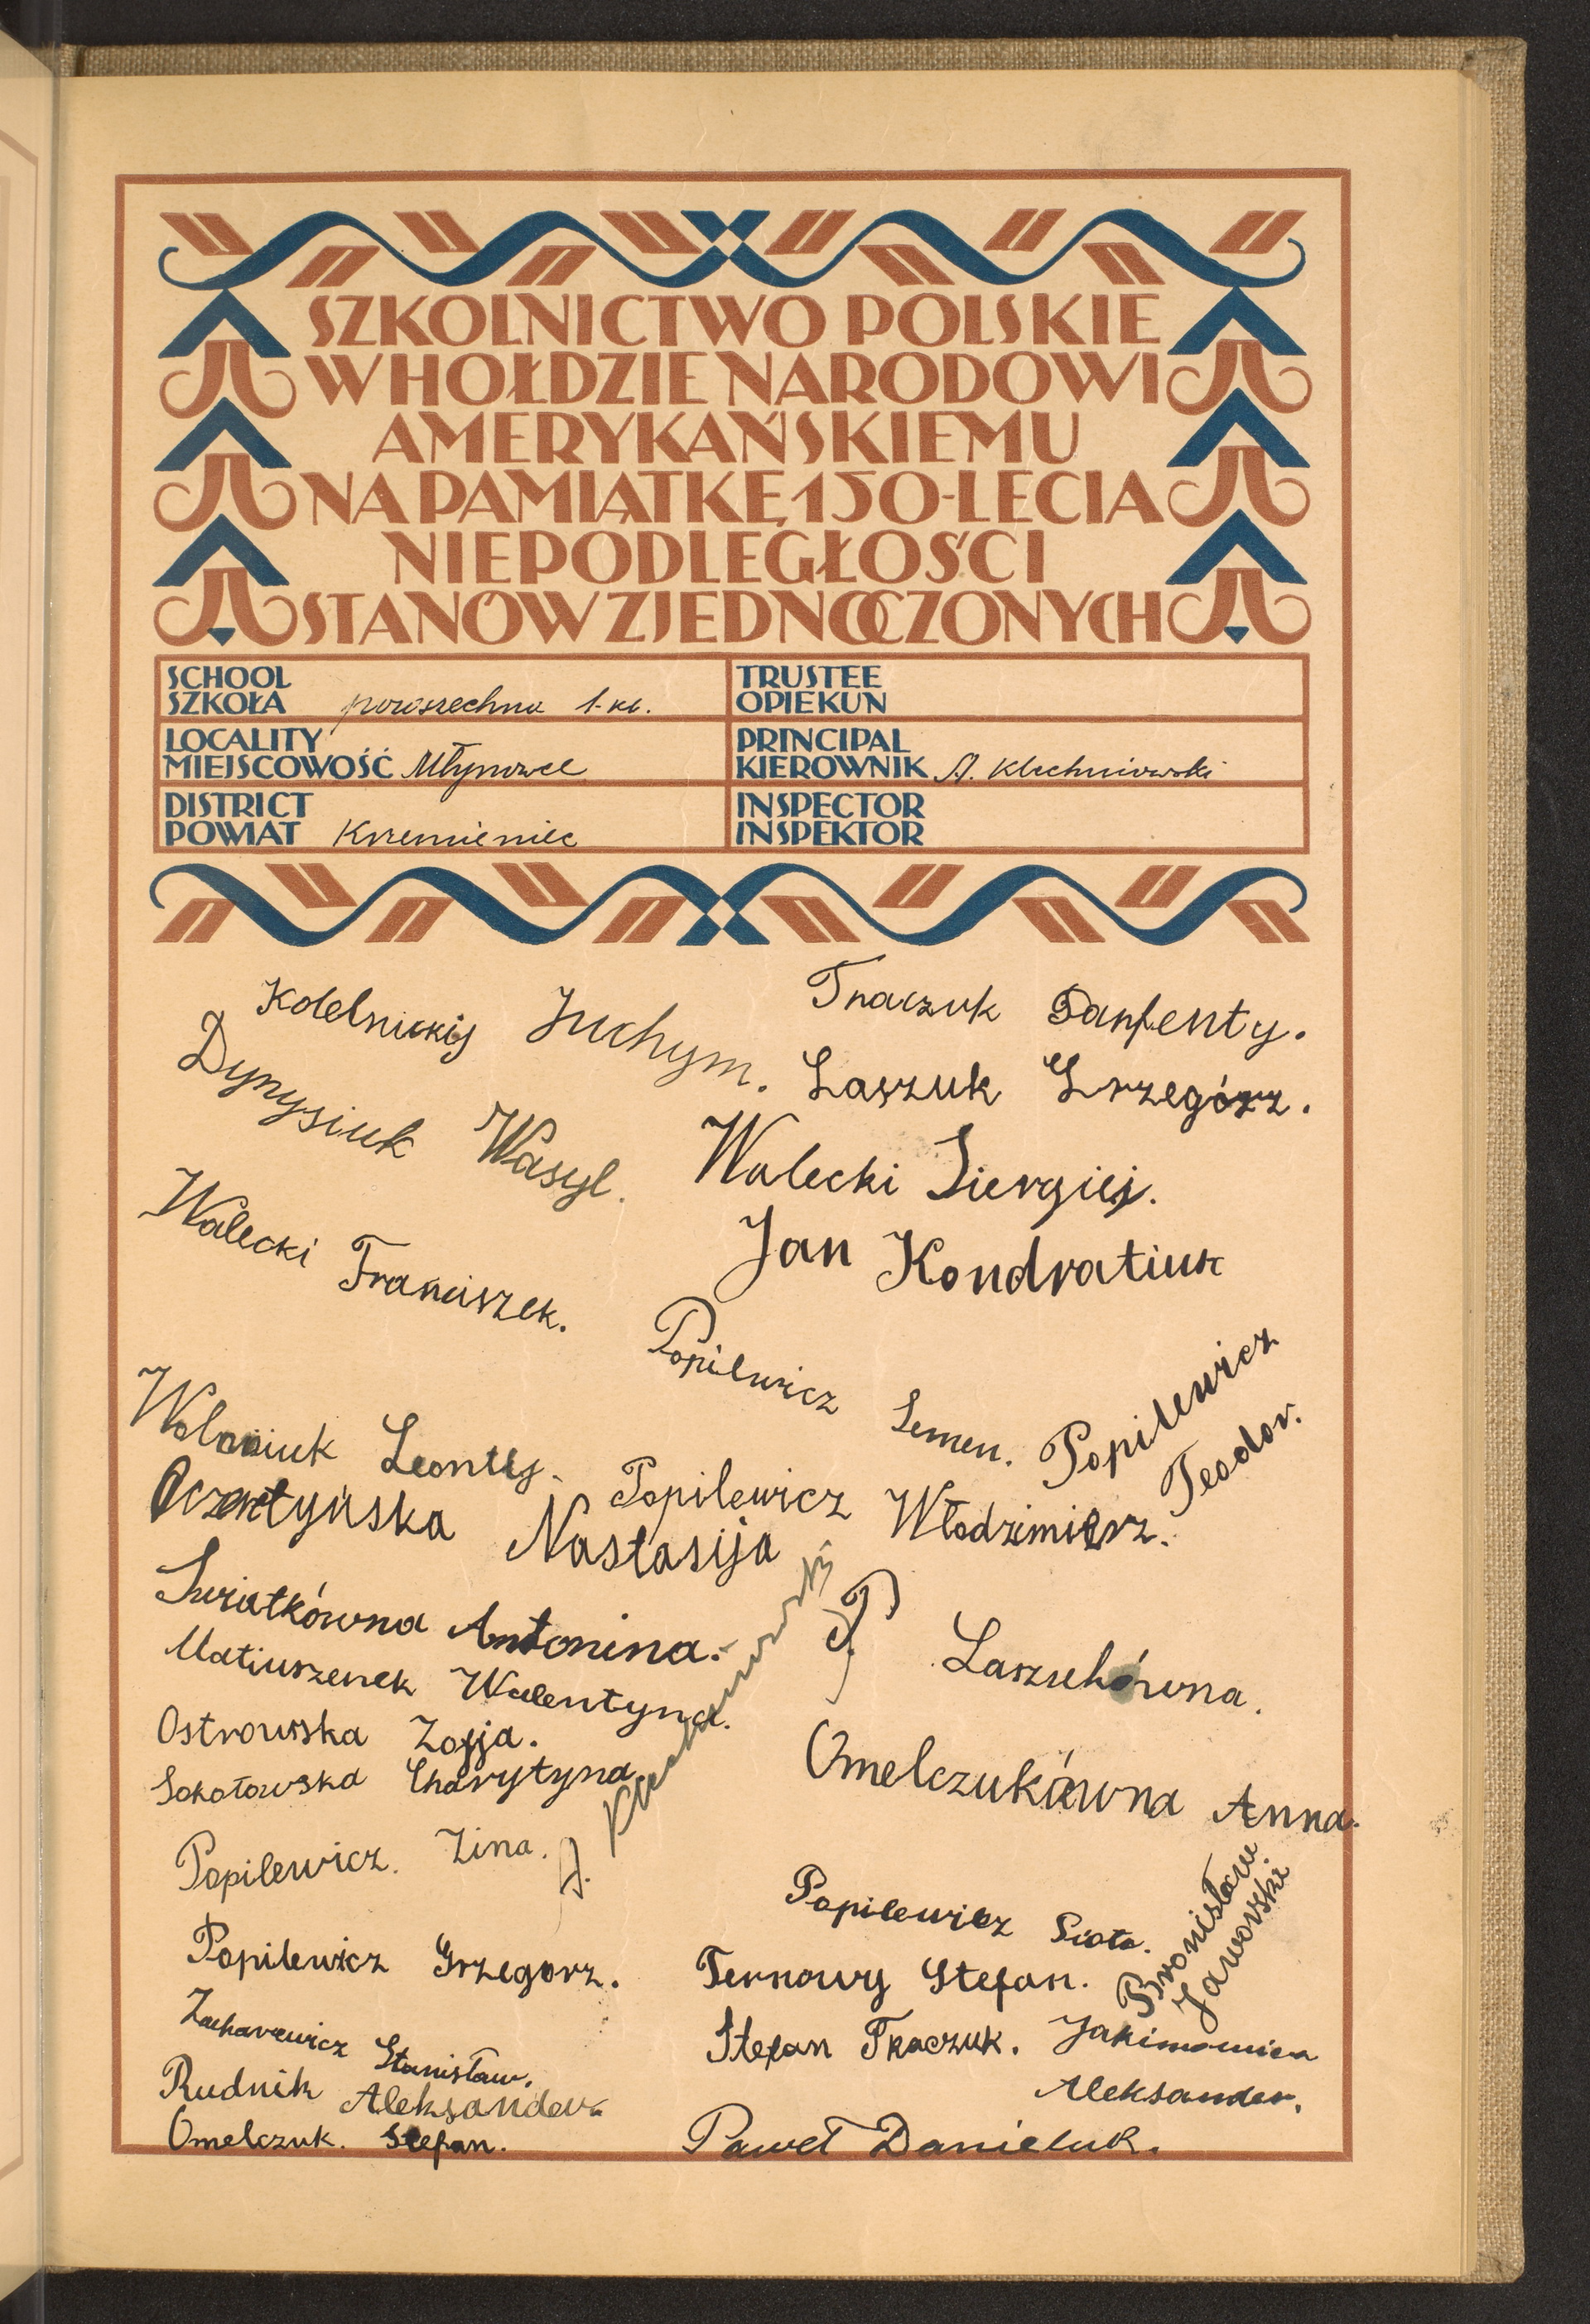 SZKOLNICTWO POLSKIE
W HOŁDZIE NARODOWI
AMERYKAŃSKIEMU
NA PAMIĄTKĘ 150-LECIA
NIEPODLEGŁOŚCI
STANÓW ZJEDNOCZONYCH
SCHOOL
SZKOŁA powszechna 1-kl.
TRUSTEE
OPIEKUN
LOCALITY
MIEJSCOWOŚĆ Młynowce
PRINCIPAL
KIEROWNIK A. Klechniowski
DISTRICT
POWIAT Krzemieniec
INSPECTOR
INSPEKTOR
Kotelnickij Juchym.
Tkaczuk Parfenty.
Dynysiuk Wasyl.
Laszuk Grzegórz.
Walecki Siergiej.
Walecki Franciszek.
Jan Kondratiuk
Popilewicz Semen.
Popilewicz
Teodor.
Leonty.
Popilewicz Włodzimierz.
Oczertyńska Nastasija
Swiatkówna Antonina.
P. Laszukówna.
Matiuszenek Walentyna.
Ostrowska Zofja.
Sokołowska Charytyna
Omelczukówna Anna.
Popilewicz. Zina.
A. Klechniowski
Popilewicz Piotr.
Bronisław
Jaworski
Popilewicz Grzegorz.
Ternowy Stefan.
Zacharewicz Stanisław.
Stefan Tkaczuk.
Jakimowicz
Aleksander.
Rudnik Aleksander
Omelczuk. Stefan.
Paweł Danieluk.